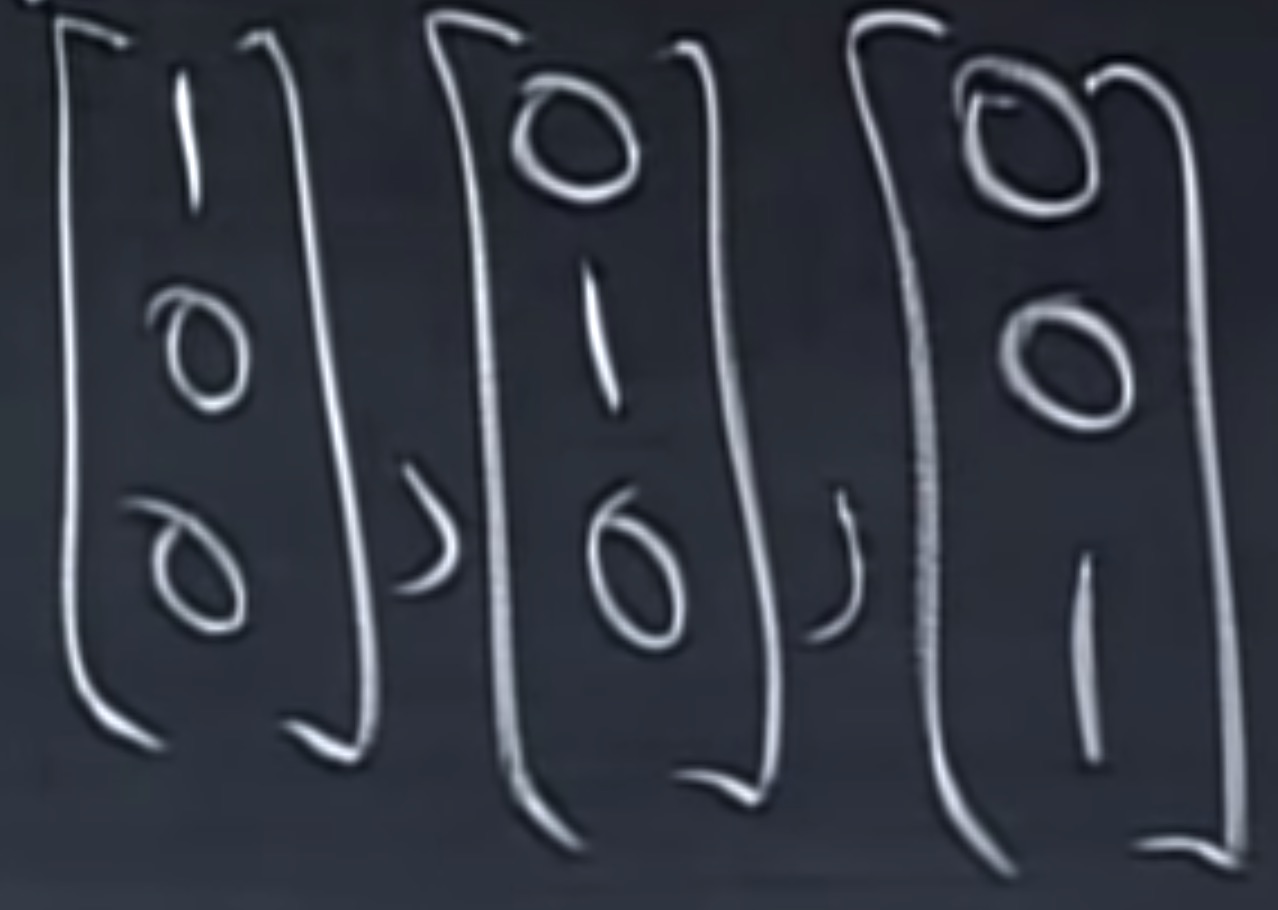 [1 [0 [0
0 1 0
0], 0], 1]